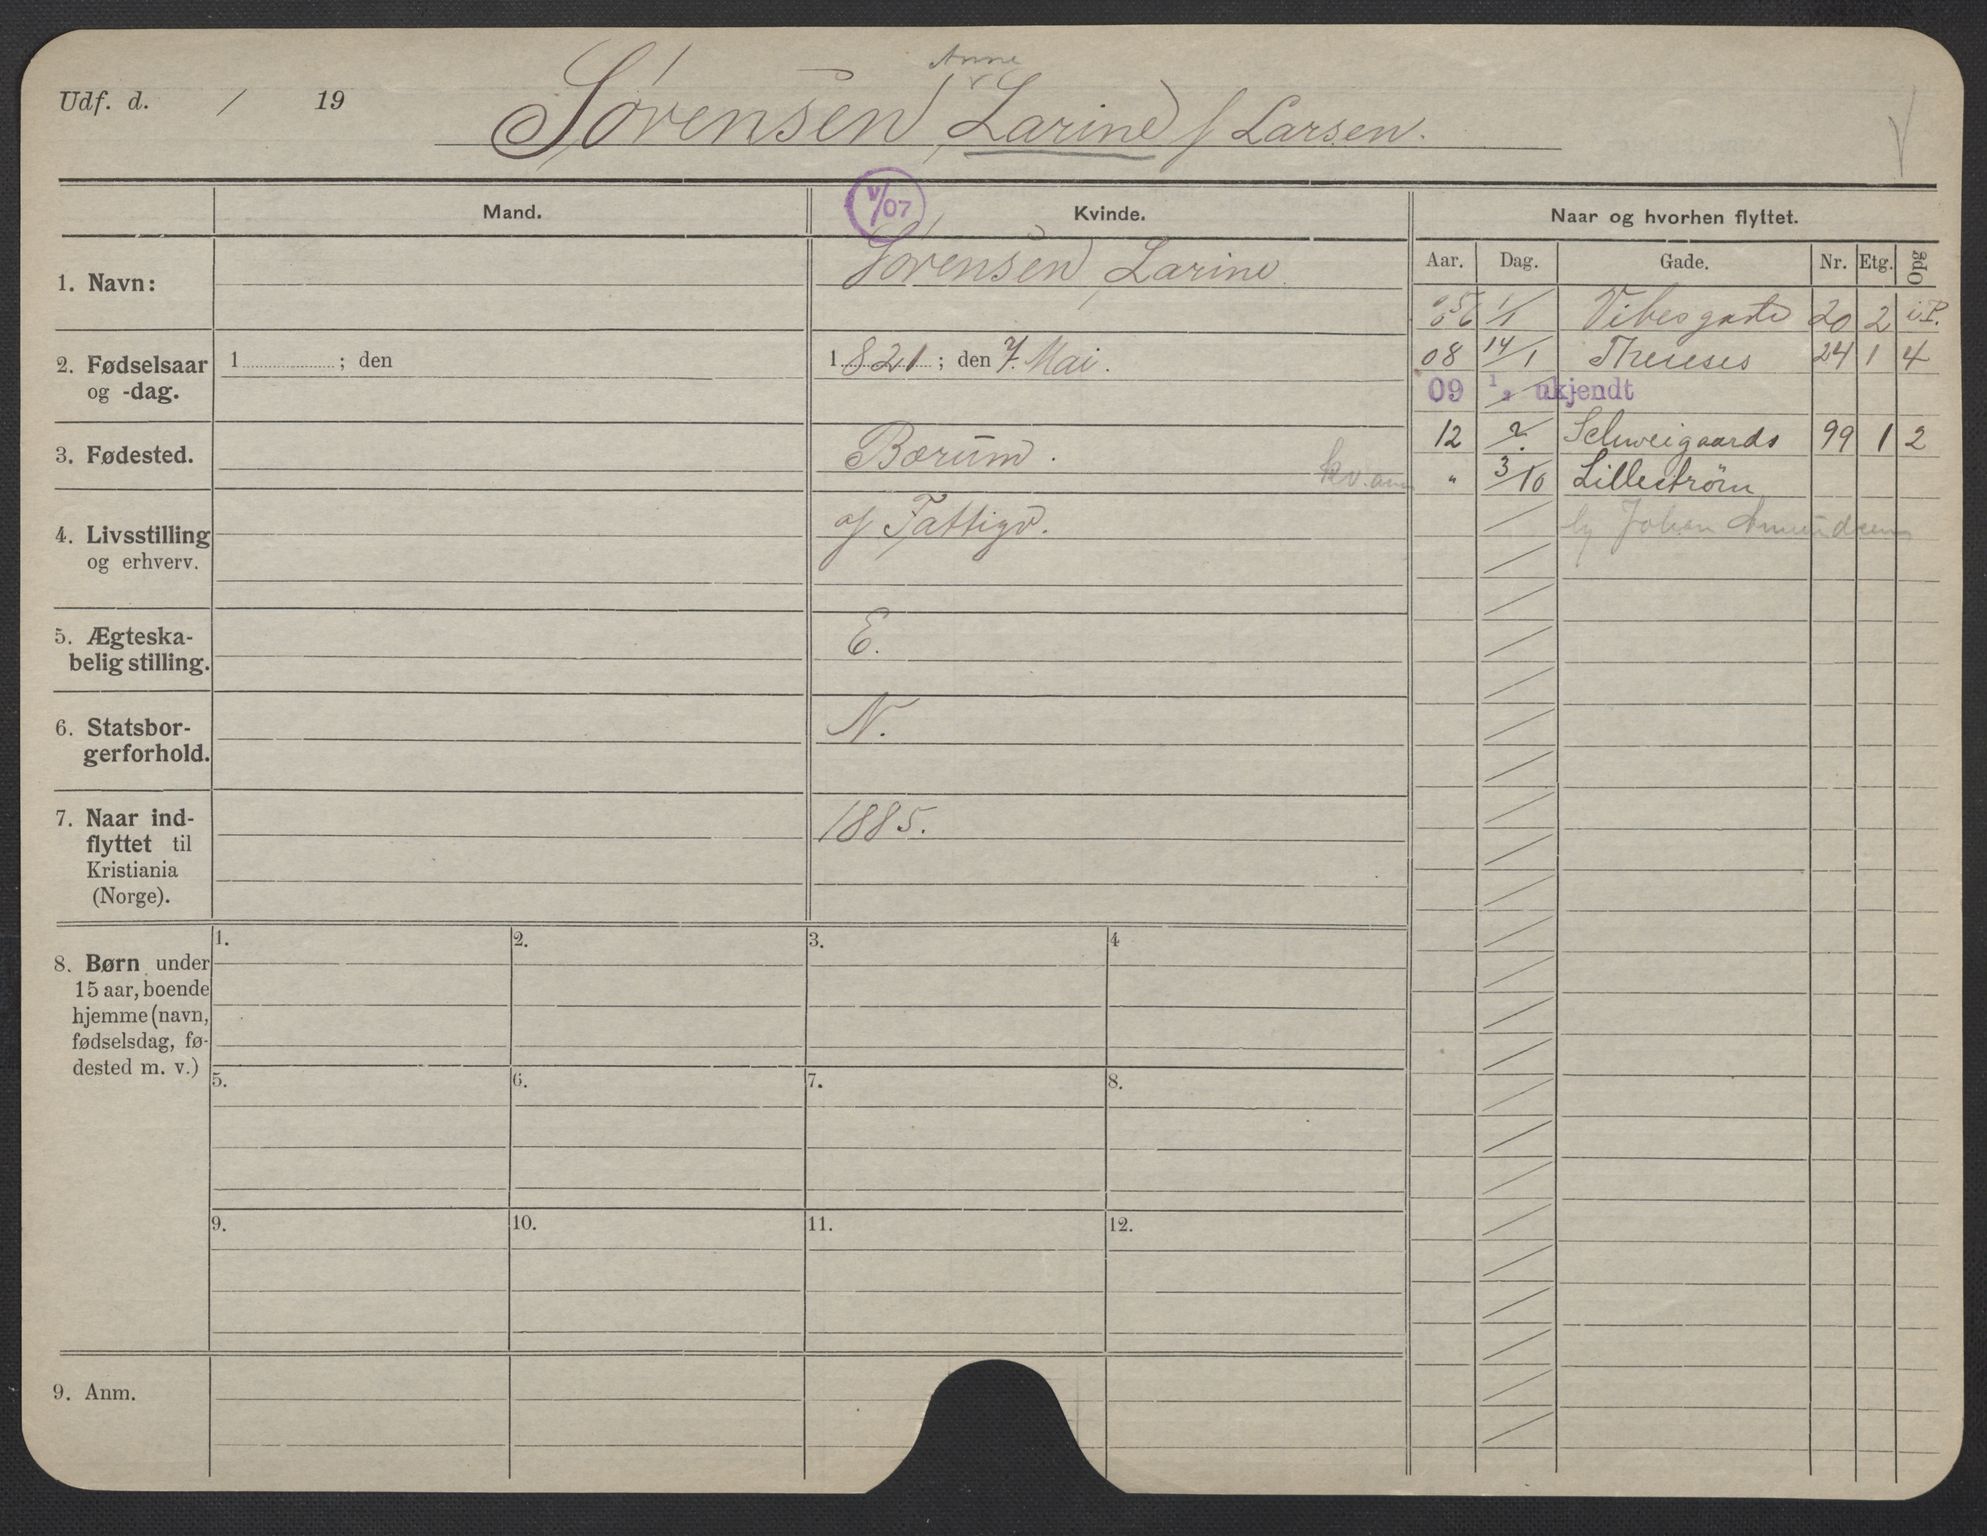 Udf. d. / 19
Anne
Sørensen, Larine f Larsen.
V
Mand.
V/07
Kvinde.
Naar og hvorhen flyttet.
Aar. Dag. Gade. Nr. Etg. Opg
1. Navn:
Sørensen, Larine
1/1 Vibesgade 20 2 i P.
2. Fødselsaar
og -dag.
1 ; den
1821; den 7. Mai.
08 14/1 Thereses 24 1 4
09 ukjendt
3. Fødested.
Bærum.
12 ? Schweigaards 99 1 2
" 3/10 Lillestrøm
4. Livsstilling
og erhverv.
af Fattigv.
Johan Amundsen
5. Ægteska-
belig stilling.
E.
6. Statsbor-
gerforhold.
N.
7. Naar ind-
flyttet til
Kristiania
(Norge).
1885.
8. Børn under
15 aar, boende
hjemme (navn,
fødselsdag, fø-
dested m. v.)
1. 2. 3. 4
5. 6. 7. 8.
9. 10. 11. 12.
9. Anm.